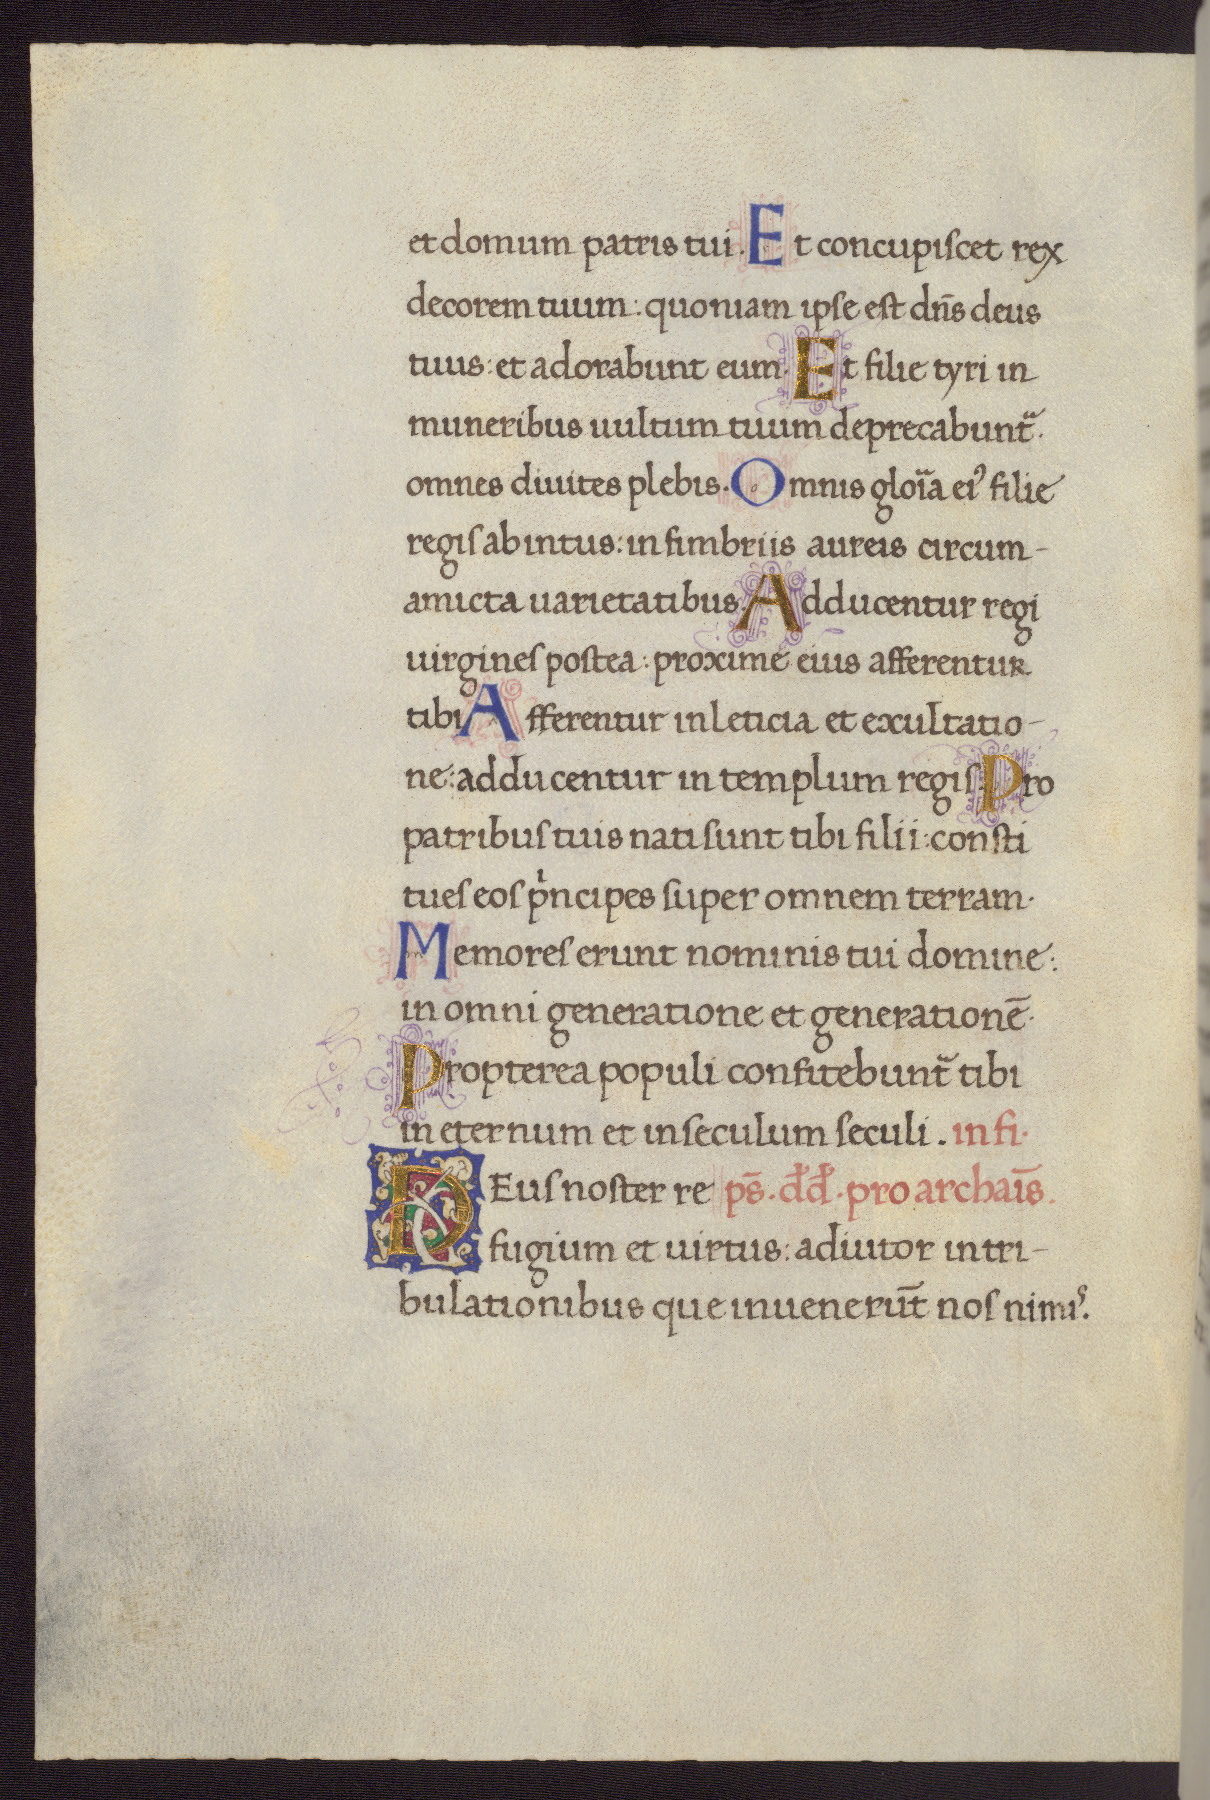 et domum patris tui. Et concupiſcet rex
decorem tuum: quoniam ipſe eſt dn̄s deus
tuus: et adorabunt eum. Et filie tyri in
muneribus uultum tuum deprecabunt᷑.
omnes diuites plebis. Omnis glor̄ia eiꝰ filie
regiſ ab intus: in fimbriis aureis circum-
amicta uarietatibus. Adducentur regi
uirgineſ poſtea: proxime eius afferentur
tibi. Afferentur in leticia et exultatio-
ne: adducentur in templum regiſ. Pro
patribuſ tuis nati sunt tibi filii: conſti
tueſ eoſ pͥncipes ſuper omnem terram.
Memoreſ erunt nominis tui domine:
in omni generatione et generationē.
Propterea populi confitebunt᷑ tibi
in eternum et in ſeculum ſeculi. in fi.
DEuſ noſter re ps̄. dd̄. pro archaīs.
fugium et uirtus: adiutor in tri-
bulationibus que inuenerūt noſ nimiˢ.